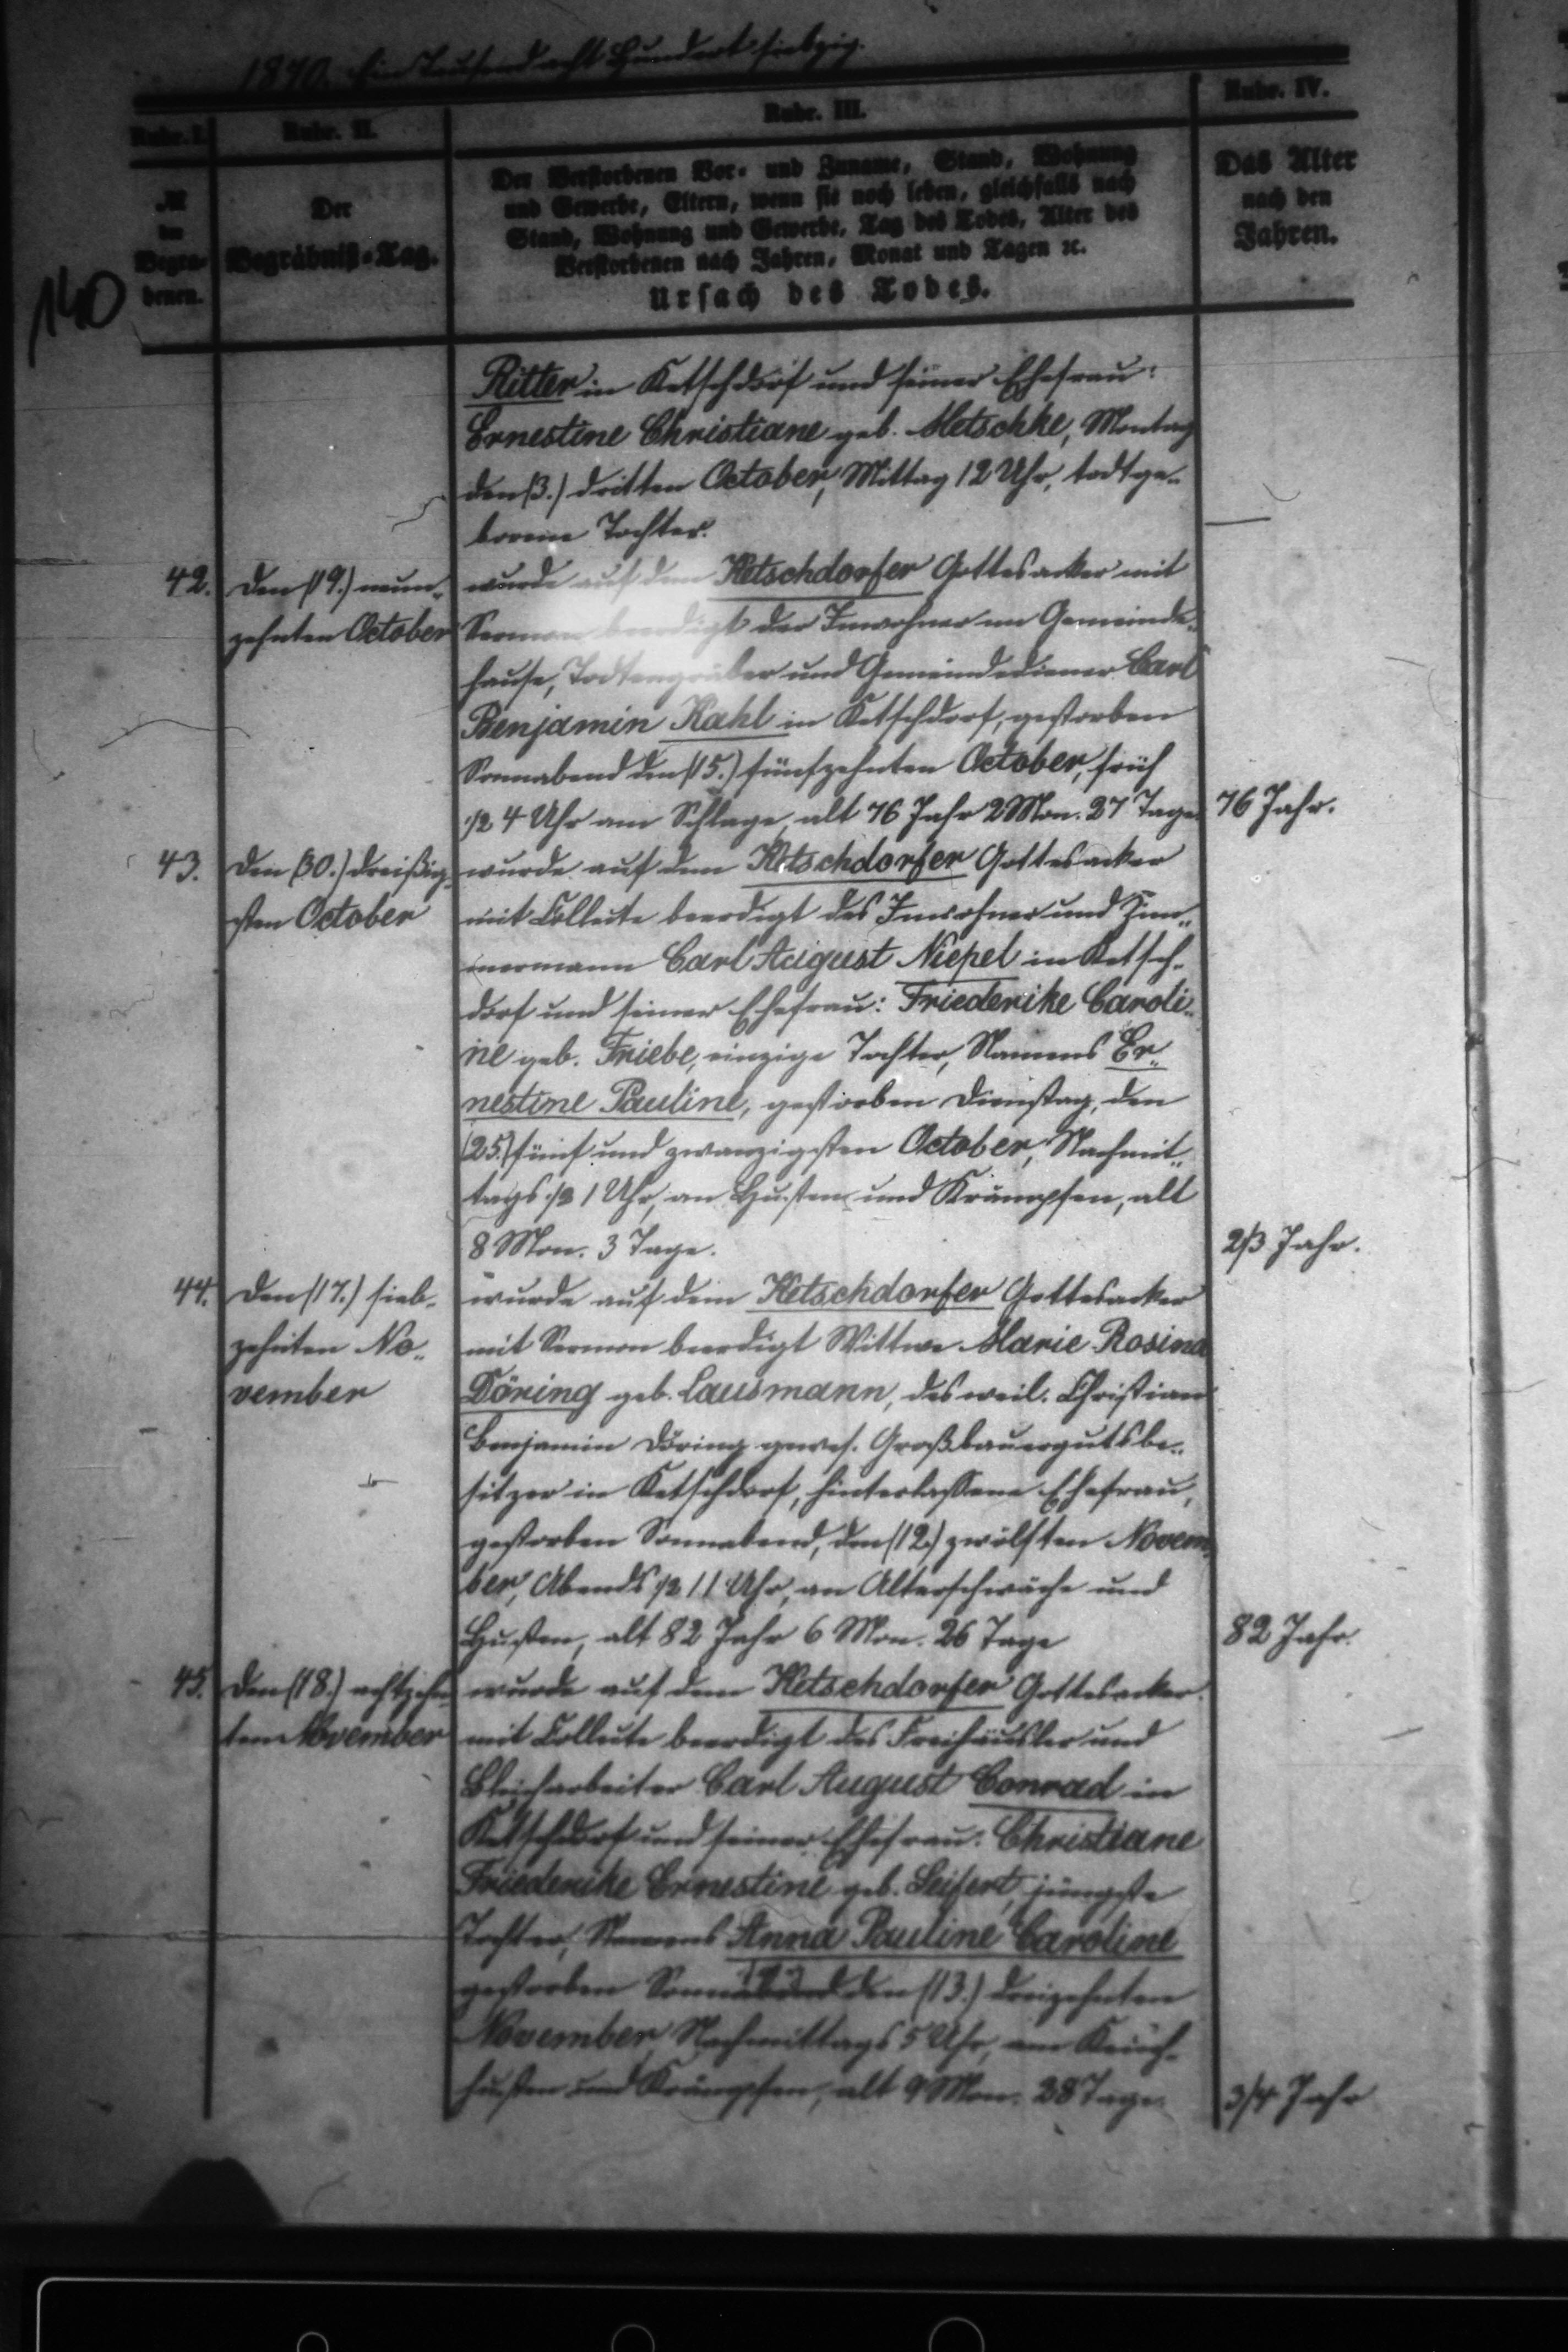 1870. Ein Tausend acht Hundert siebzig.
Rubr. I.
Rubr. II.
Rubr. III.
Rubr. IV.
№
der
Begra-
benen.
Der
Begräbniß-Tag.
Der Verstorbenen Vor- und Zuname, Stand, Wohnung
und Gewerbe, Eltern, wenn sie noch leben, gleichfalls nach
Stand, Wohnung und Gewerbe, Tag des Todes, Alter des
Verstorbenen nach Jahren, Monat und Tagen ꝛc.
Ursach des Todes.
Das Alter
nach den
Jahren.
140
Ritter in Ketschdorf und seiner Ehefrau:
Ernestine Christiane geb. Metschke, Montag
den (3.) dritten October, Mittag 12 Uhr, todtge-
borene Tochter.
—
42.
den (19.) neun-
zehnten October
wurde auf dem Ketschdorfer Gottesacker mit
Sermon beerdigt der Inwohner im Gemeinde-
hause, Todtengräber und Gemeindediener Carl
Benjamin Kahl in Ketschdorf, gestorben
Sonnabend den (15.) fünfzehnten October, früh
1/2 4 Uhr am Schlage, alt 76 Jahr 2 Mon. 27 Tage.
76 Jahr.
43.
den (30.) dreißig-
sten October
wurde auf dem Ketschdorfer Gottesacker
mit Collecte beerdigt des Inwohner und Zim-
mermann Carl August Niepel in Ketsch-
dorf und seiner Ehefrau: Friederike Caroli-
ne geb. Friebe, einzige Tochter, Namens Er-
nestine Pauline, gestorben Dienstag, den
(25.) fünf und zwanzigsten October, Nachmit-
tags 1/2 1 Uhr, an Husten und Krämpfen, alt
8 Mon. 3 Tage.
2/3 Jahr.
44.
den (17.) sieb-
zehnten No-
vember
wurde auf dem Ketschdorfer Gottesacker
mit Sermon beerdigt Wittwe Marie Rosina
Döring geb. Lausmann, des weil. Christian
Benjamin Döring gewes. Großbauergutsbe-
sitzer in Ketschdorf, hinterlassene Ehefrau,
gestorben Sonnabend, den (12.) zwölften Novem-
ber, Abends 1/2 11 Uhr, an Alterschwäche und
Husten, alt 82 Jahr 6 Mon. 26 Tage
82 Jahr.
45.
den (18.) achtzehn-
ten November
wurde auf dem Ketschdorfer Gottesacker
mit Collecte beerdigt des Freihäusler und
Bleicharbeiter Carl August Conrad in
Ketschdorf und seiner Ehefrau: Christiane
Friederike Ernestine geb. Seifert, jüngste
Tochter, Namens Anna Pauline Caroline
gestorben den (13.) dreizehnten
November, Nachmittags 5 Uhr, am Keuch-
husten und Krämpfen, alt 9 Mon. 28 Tage.
3/4 Jahr